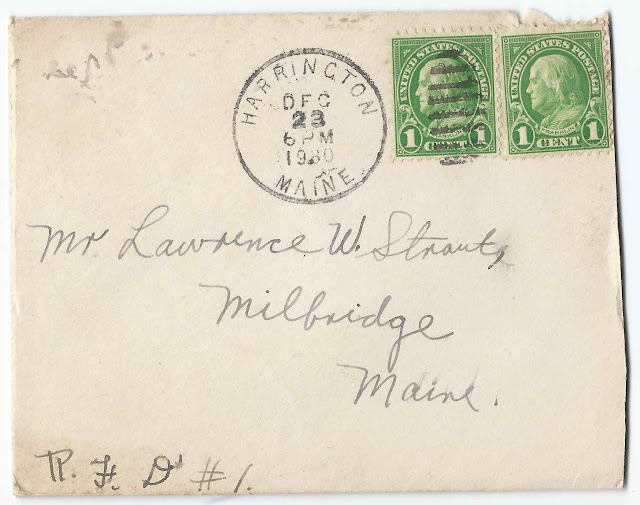 HARRINGTON
DEC
23
6 PM
1930
MAINE
UNITED STATES POSTAGE
1 1
CENT
UNITED STATES POSTAGE
FRANKLIN
1 1
CENT
Mr Lawrence W. Strout,
Milbridge
Maine.
R. F. D #1.